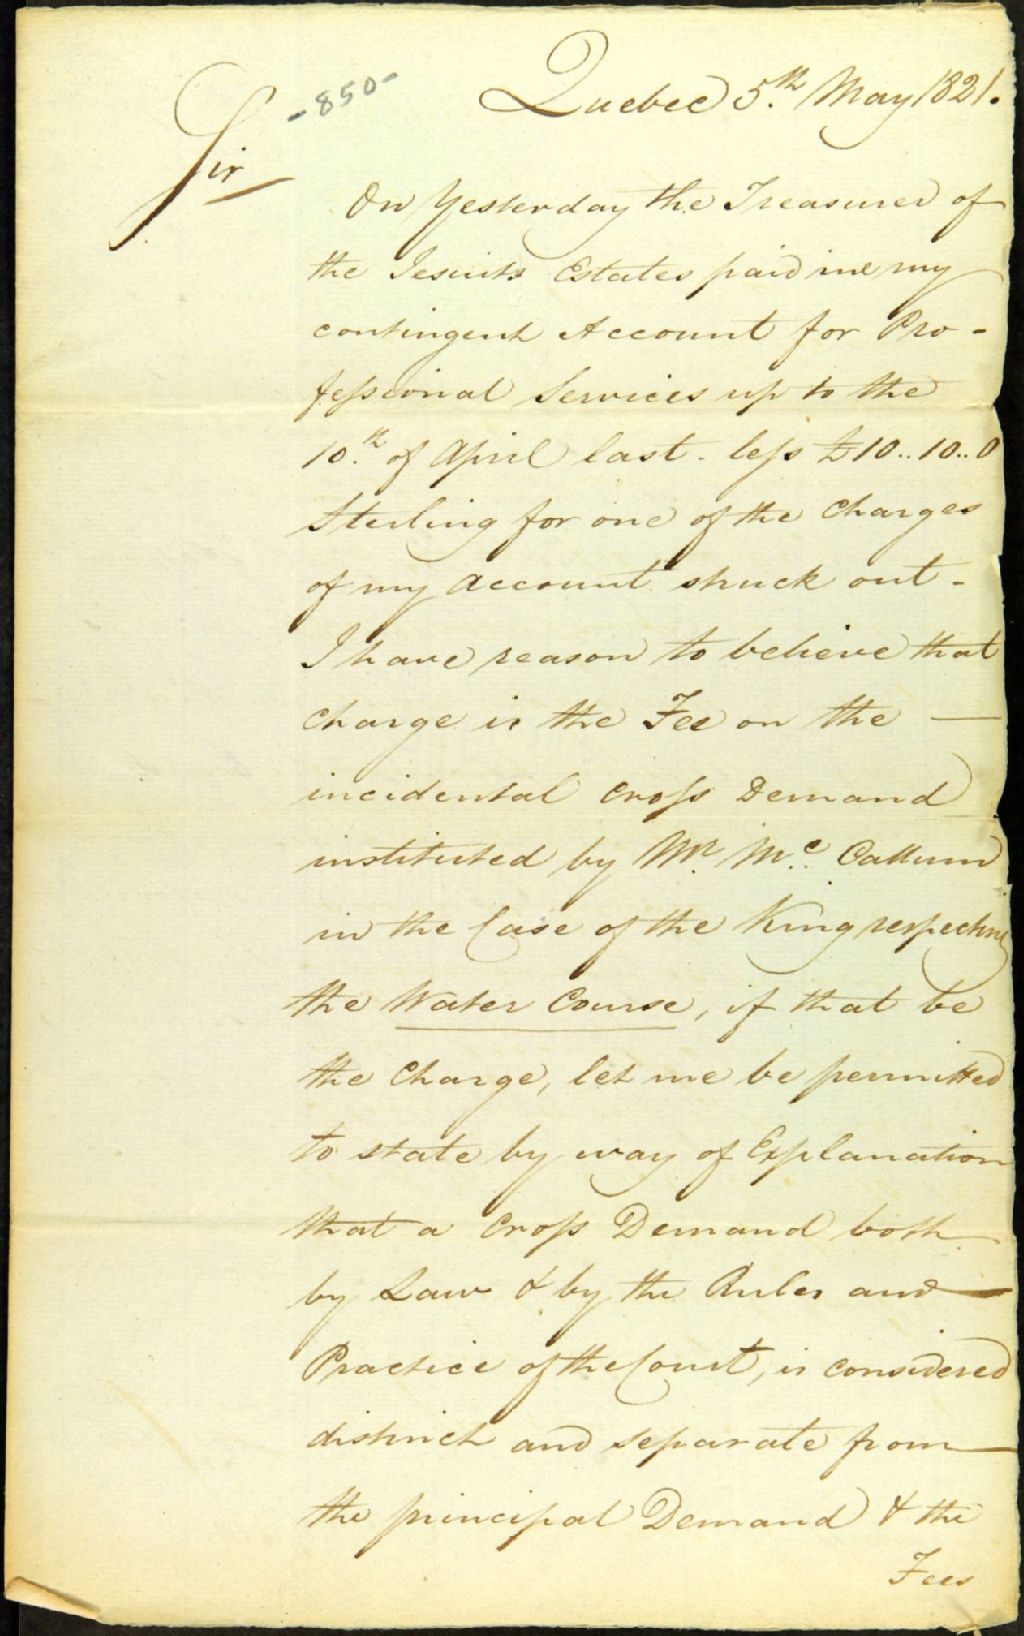 -850-
Quebec 5.th May 1821.
Sir
On Yesterday the Treasurer of
the Jesuits Estates paid me my
contingent Account for Pro-
fessional Services up to the
10.th of April last. less £10..10..0
Sterling for one of the Charges
of my Account struck out -
I have reason to believe that
Charge is the Fee on the —
incidental Cross Demand
instituted by Mr. Mc. Callum
in the Case of the King respecting
the Water Course, if that be
the Charge, let me be permitted
to state by way of Explanation
that a Cross Demand both
by Law & by the Rules and —
Practice of the Court, is considered
distinct and separate from —
the principal Demand & the
Fees